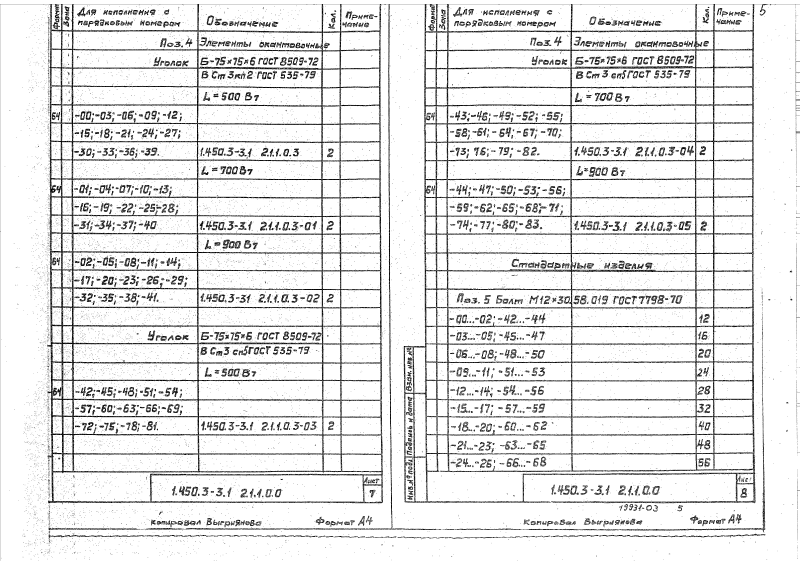 Формат Зона Для исполнения с порядковым номером Обозначение Кол. Примечание
Поз. 4 Элементы окантовочные
Уголок Б-75×75×6 ГОСТ 8509-72
В Ст 3кп2 ГОСТ 535-79
L = 500 Вт
64 -00;-03;-06;-09;-12;
-15;-18;-21;-24;-27;
-30;-33;-36;-39. 1.450.3-3.1 2.1.1.0.3 2
L = 700 Вт
64 -01;-04;-07;-10;-13;
-16;-19;-22;-25;-28;
-31;-34;-37;-40 1.450.3-3.1 2.1.1.0.3-01 2
L = 900 Вт
64 -02;-05;-08;-11;-14;
-17;-20;-23;-26;-29;
-32;-35;-38;-41. 1.450.3-31 2.1.1.0.3-02 2
Уголок Б-75×75×6 ГОСТ 8509-72
В Ст3 сп5 ГОСТ 535-79
L = 500 Вт
64 -42;-45;-48;-51;-54;
-57;-60;-63;-66;-69;
-72;-75;-78;-81. 1.450.3-3.1 2.1.1.0.3-03 2
1.450.3-3.1 2.1.1.0.0
Лист
7
Копировал Выгриянова Формат А4
5
Формат Зона Для исполнения с порядковым номером Обозначение Кол. Примечание
Поз. 4 Элементы окантовочные
Уголок Б-75×75×6 ГОСТ 8509-72
В Ст 3 сп5 ГОСТ 535-79
L = 700 Вт
64 -43;-46;-49;-52;-55;
-58;-61;-64;-67;-70;
-73; 76;-79;-82. 1.450.3-3.1 2.1.1.0.3-04 2
L=900 Вт
64 -44;-47;-50;-53;-56;
-59;-62;-65;-68;-71;
-74;-77;-80;-83. 1.450.3-3.1 2.1.1.0.3-05 2
Стандартные изделия
Поз. 5 Болт М12×30.58.019 ГОСТ 7798-70
-00...-02; -42...-44 12
-03...-05; -45...-47 16
-06...-08; -48...-50 20
-09...-11; -51...-53 24
-12...-14; -54...-56 28
-15...-17; -57...-59 32
-18...-20; -60...-62 40
-21...-23; -63...-65 48
-24...-26; -66...-68 56
Инв.№ подл. Подпись и дата Взам. инв.№
1.450.3-3.1 2.1.1.0.0
Лист
8
19931-03 5
Копировал Выгриянова Формат А4